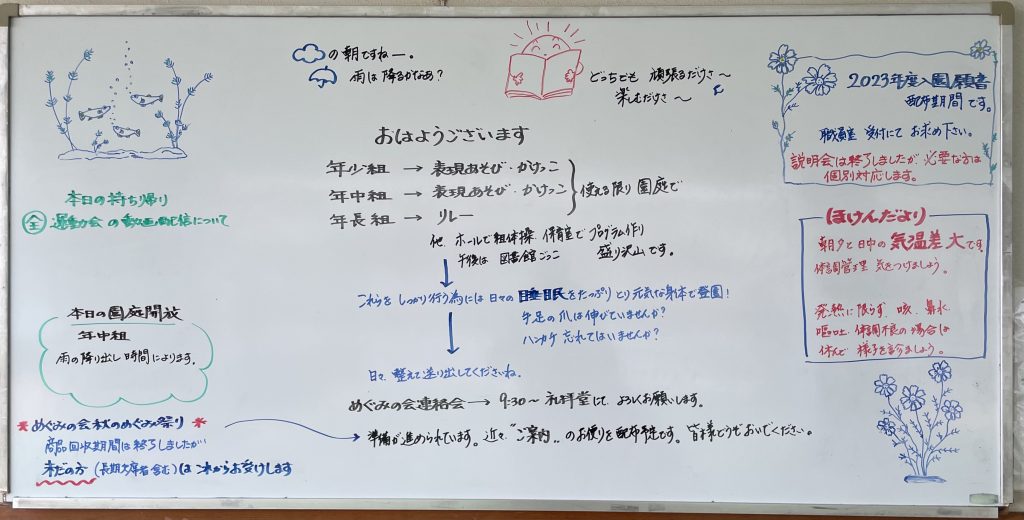 ☁の朝ですねー。
☂雨は降るかなあ?
どっちでも 頑張るだけさ～
楽むだけさ～
おはようございます
年少組 → 表現あそび・かけっこ
年中組 → 表現あそび・かけっこ
年長組 → リレー
使える限り 園庭で
他 ホールで組体操 保育室でプログラム作り
午後は 図書館ごっこ 盛り沢山です。
これらを しっかり行う為には 日々の 睡眠をたっぷり とり 元気な身体で登園!
手足の爪は伸びていませんか?
ハンカチ 忘れてはいませんか?
日々、整えて送り出してくださいね。
めぐみの会連絡会 → 9:30～ 礼拝堂にて よろしくお願いします。
準備が進められています。近々"ご案内"のお便りを配布予定です。皆様どうぞおいでください。
本日の持ち帰り
全 運動会の動画配信について
本日の園庭開放
年中組
雨の降り出し時間によります。
めぐみの会 秋のめぐみ祭り
商品回収期間は終了しましたが
未だの方(長期欠席者含む)はこれからお受けします
2023年度入園願書
配布期間です。
職員室 受付にて お求め下さい。
説明会は終了しましたが 必要な方は
個別対応します。
ほけんだより
朝夕と日中の気温差大です
体調管理 気をつけましょう。
発熱に限らず、咳、鼻水、
嘔吐、体調不良の場合は
休んで 様子を診ましょう。